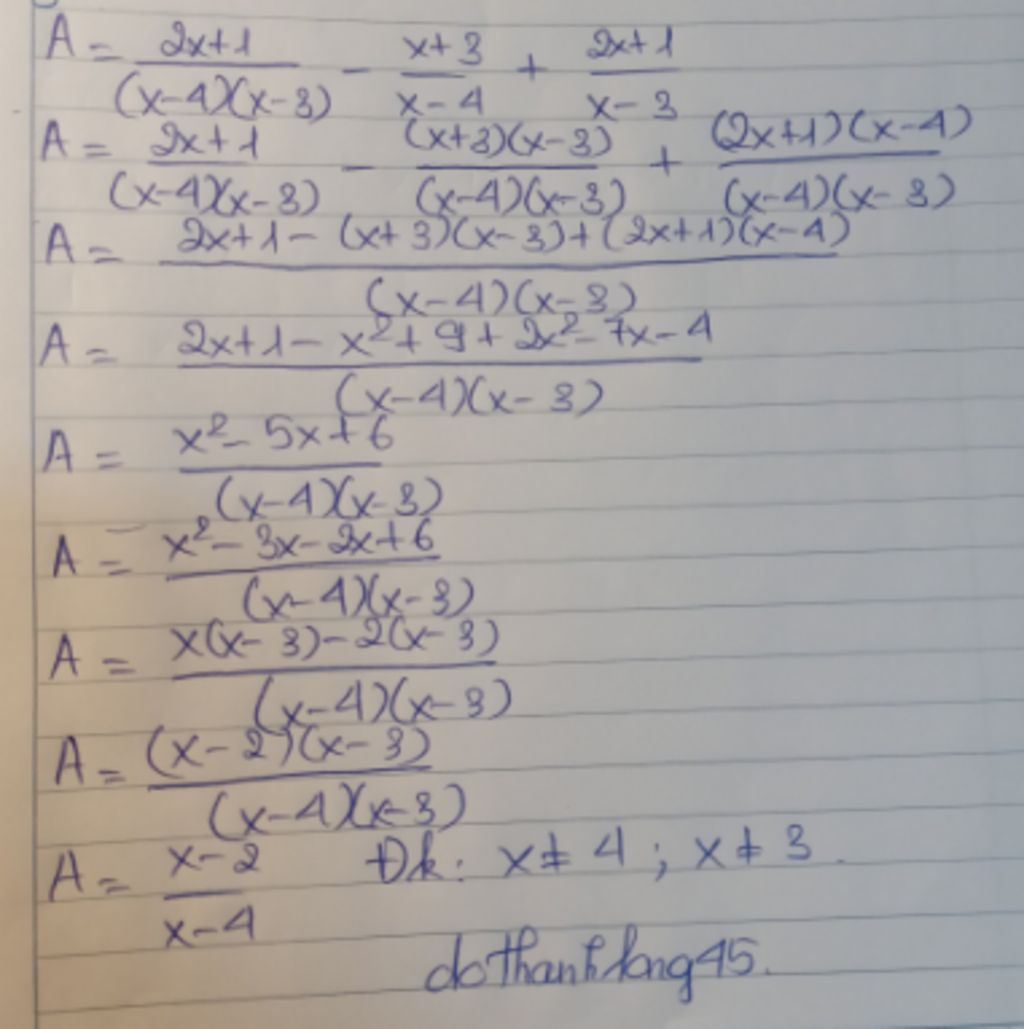 A = (2x+1)/((x-4)(x-3)) - (x+3)/(x-4) + (2x+1)/(x-3)
A = (2x+1)/((x-4)(x-3)) - ((x+3)(x-3))/((x-4)(x-3)) + ((2x+1)(x-4))/((x-4)(x-3))
A = (2x+1-(x+3)(x-3)+(2x+1)(x-4))/((x-4)(x-3))
A = (2x+1-x²+9+2x²-7x-4)/((x-4)(x-3))
A = (x²-5x+6)/((x-4)(x-3))
A = (x²-3x-2x+6)/((x-4)(x-3))
A = (x(x-3)-2(x-3))/((x-4)(x-3))
A = ((x-2)(x-3))/((x-4)(x-3))
A = (x-2)/(x-4) Đk: x ≠ 4 ; x ≠ 3.
dothanhlong45.